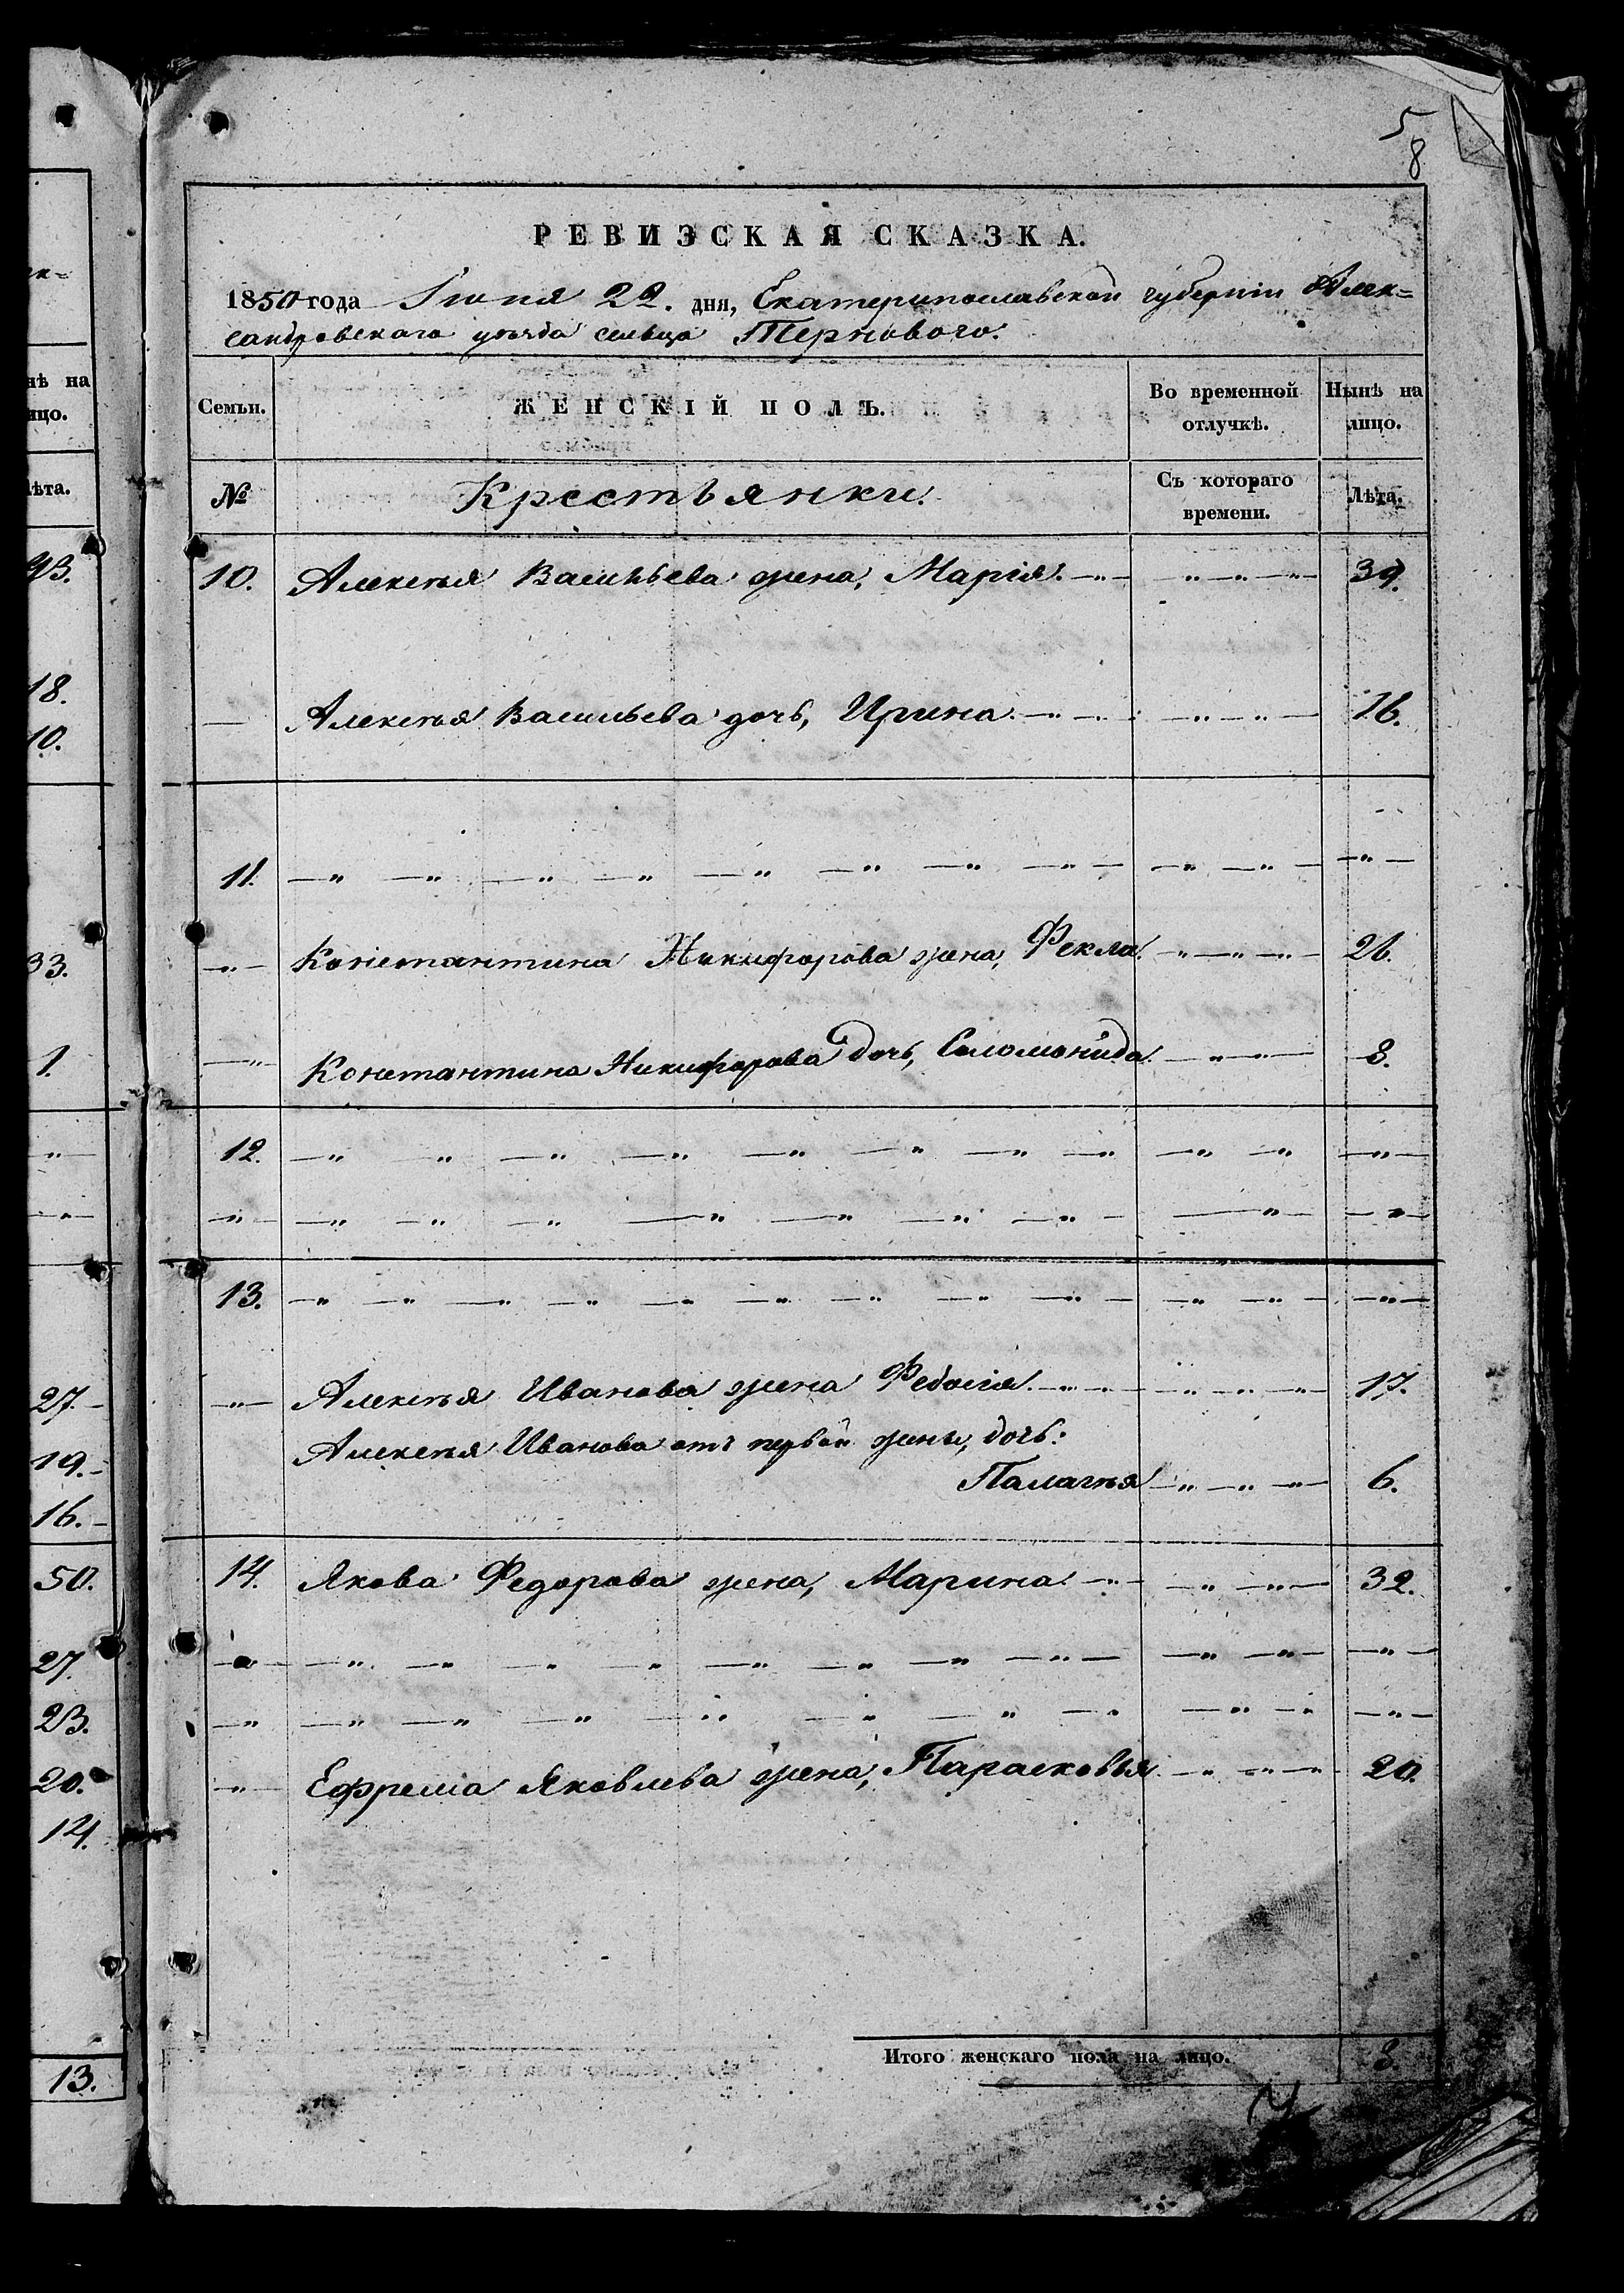 5
8
РЕВИЗСКАЯ СКАЗКА.
1850 года Іюня 22. дня, Екатеринославской губерніи Алек=
сандровскаго уѣзда сельца Терноваго.
Семьи. ЖЕНСКІЙ ПОЛЪ. Во временной отлучкѣ. Нынѣ на лицо.
№ Крестьянки. Съ котораго времени. Лѣта.
10. Алексѣя Васильева жена, Марія. —„— „—„—„— 39.
— Алексѣя Васильева дочь, Ирина. —„—„ —„—„— 16.
11. —„ —„ —„ —„ —„ —„ —„ —„— —„ —„— —„—
—„— Константина Никифорова жена, Фекла. —„—„—„— 26.
—„ Константина Никифорова дочь, Соломонида. —„—„— 8.
12. —„ —„ —„ —„ —„ —„ —„ —„ —„ —„ —„—
—„— —„ —„ —„ —„ —„ —„ —„— —„— —„—
13. —„ —„ —„ —„ —„ —„ —„ —„ —„— —„ —„— —„—
—„— Алексѣя Иванова жена Федосія. —„—„— —„—„—„ 17.
Алексѣя Иванова отъ первой жены, дочь:
Палагѣя —„—„—„— 6.
14. Якова Федорова жена, Марина. —„— —„—„— 32.
—„— —„ —„ —„ —„ —„ —„ —„ —„— —„ —„— —„—
—„ —„ —„ —„ —„ —„ —„ —„ —„ —„ —„—
—„— Ефрема Яковлева жена, Парасковья. —„—„—„ 20.
Итого женскаго пола на лицо. 8.
ек=
нѣ на
ицо.
ѣта.
43.
18.
10.
33.
1.
—„—
—„—
27.
19.
16.
50.
27.
23.
20.
14.
13.